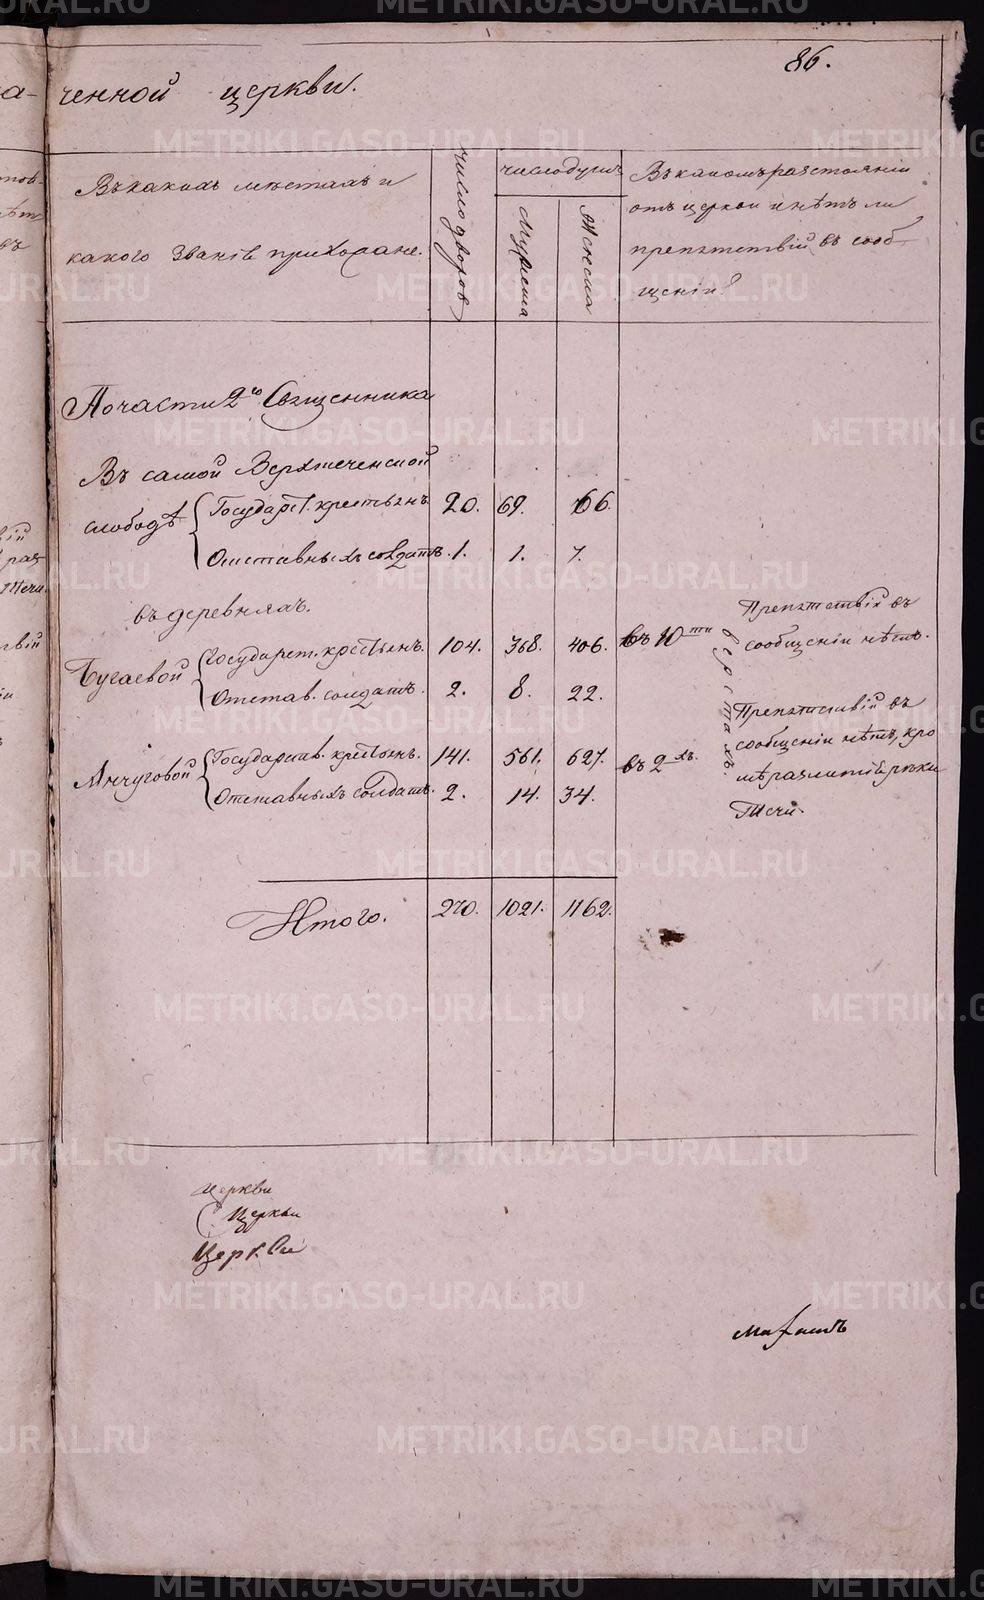 86.
ченной церкви.
Въ какихъ мѣстахъ и
какого званія прихожане.
Число дворовъ
Число душъ
Мужеска
Женска
Въ какомъ разстояніи
отъ церкви и нѣтъ ли
препятствій въ сооб-
щеніи?
По части 2го Священника
Въ самой Верхтеченской
слободѣ
Государст. крестьянъ 20. 69. 66.
Отставныхъ солдатъ. 1. 1. 7.
въ деревняхъ.
Бугаевой
Государст. крестьянъ. 104. 368. 406. въ 10ти верстахъ. Препятствій въ
сообщеніи нѣтъ.
Отстав. солдатъ. 2. 8. 22.
Анчуговой
Государств. крестьянъ. 141. 561. 627. въ 2хъ. Препятствій въ
сообщеніи нѣтъ, кро
мѣ разлитія рѣки
Течи.
Отставныхъ солдатъ. 2. 14. 34.
Итого. 270. 1021. 1162.
церкви
Церкви
Церкви
METRIKI.GASO-URAL.RU